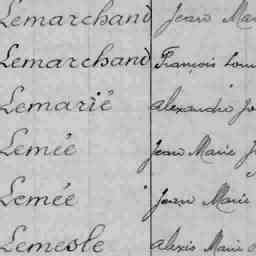 Lemarchand Jean Mar
Lemarchand François Loui
Lemarié Alexandre Jo
Lemée Jean Marie J
Lemée Jean Marie
Lemesle Alexis Marie